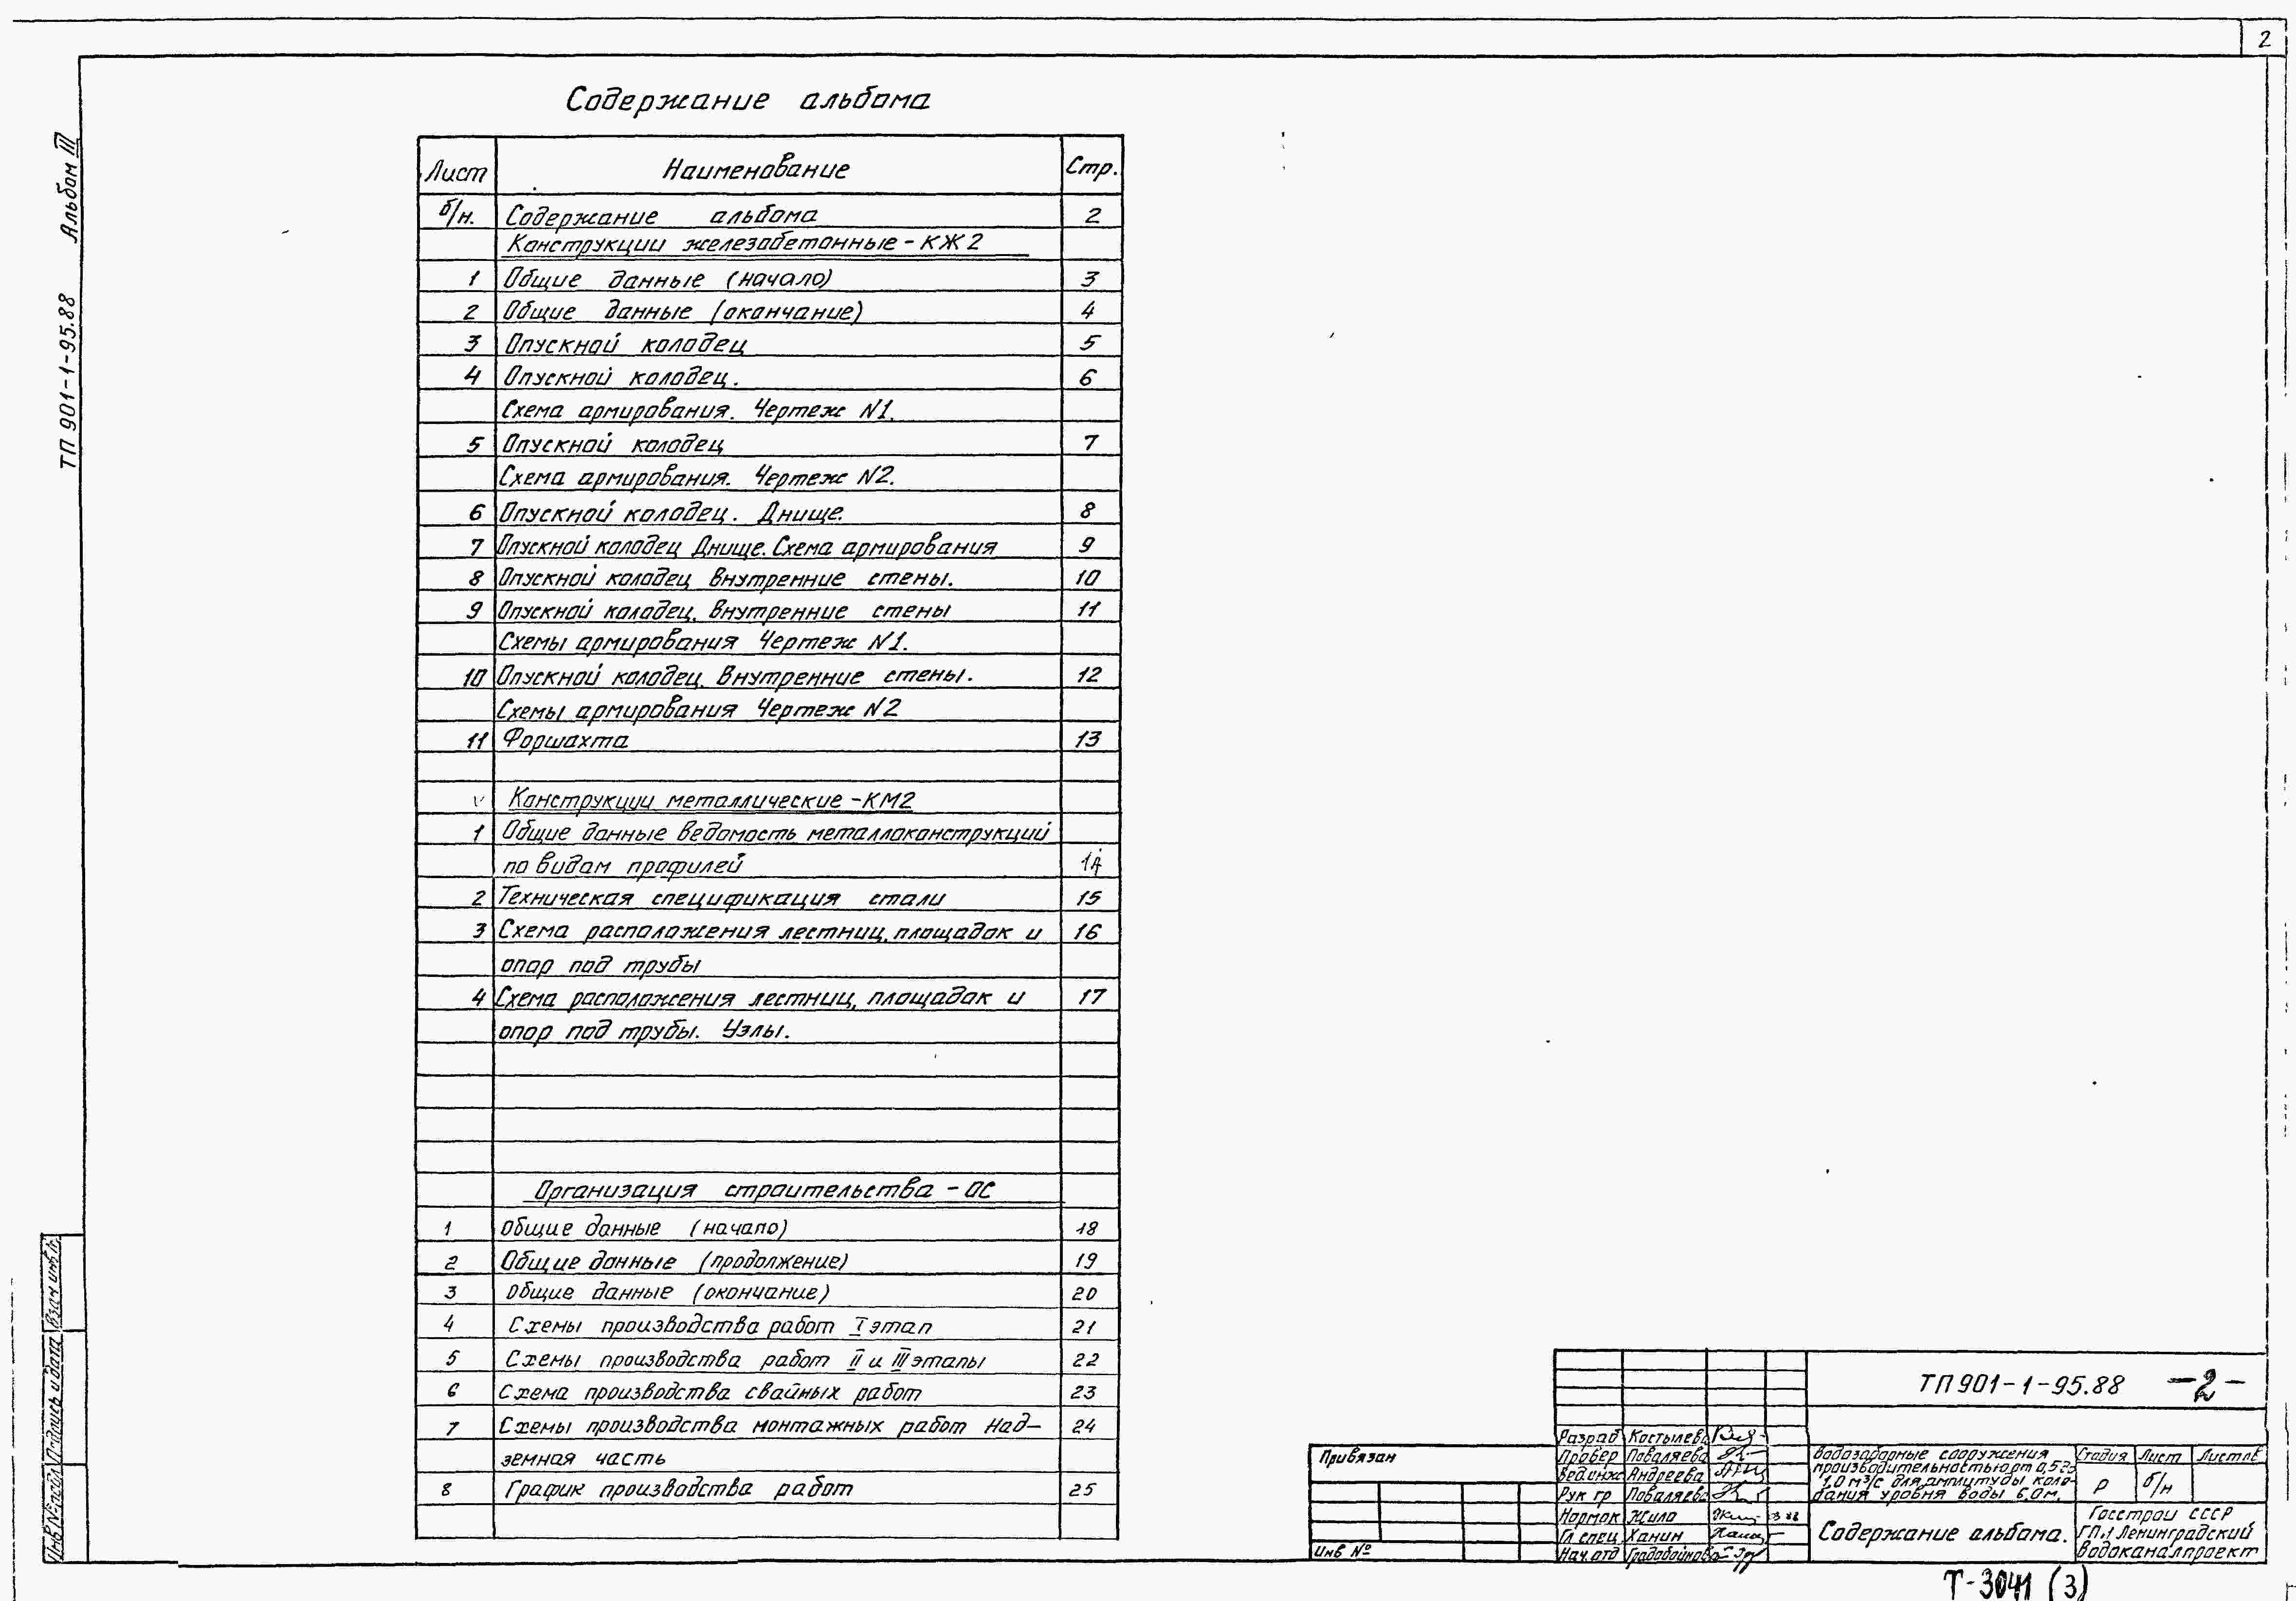 2
Содержание альбома
ТП 901-1-95.88 Альбом III
Лист Наименование Стр.
б/н. Содержание альбома 2
Конструкции железобетонные - КЖ2
1 Общие данные (начало) 3
2 Общие данные (окончание) 4
3 Опускной колодец 5
4 Опускной колодец. 6
Схема армирования. Чертеж N1.
5 Опускной колодец 7
Схема армирования. Чертеж N2.
6 Опускной колодец. Днище. 8
7 Опускной колодец Днище. Схема армирования 9
8 Опускной колодец Внутренние стены. 10
9 Опускной колодец. Внутренние стены 11
Схемы армирования Чертеж N1.
10 Опускной колодец. Внутренние стены. 12
Схемы армирования Чертеж N2
11 Форшахта 13
Конструкции металлические - КМ2
1 Общие данные Ведомость металлоконструкций
по видам профилей 14
2 Техническая спецификация стали 15
3 Схема расположения лестниц, площадок и 16
опор под трубы
4 Схема расположения лестниц, площадок и 17
опор под трубы. Узлы.
Организация строительства - ОС
1 Общие данные (начало) 18
2 Общие данные (продолжение) 19
3 Общие данные (окончание) 20
4 Схемы производства работ I этап 21
5 Схемы производства работ II и III этапы 22
6 Схема производства свайных работ 23
7 Схемы производства монтажных работ Над- 24
земная часть
8 График производства работ 25
Взам инв №
Подпись и дата
Инв № подл
Привязан
Инв №
ТП 901-1-95.88 -2-
Разраб Костылева
Провер Поваляева
Вед инж Андреева
Рук гр Поваляева
Нормок Жила
Гл спец Ханин
Нач. отд Градобойнова
Водозаборные сооружения
производительностью от 0,5 до
1,0 м3/с для амплитуды коле-
бания уровня воды 6,0 м.
Стадия Лист Листов
Р б/н
Содержание альбома.
Госстрой СССР
ГПИ Ленинградский
Водоканалпроект
Т-3041 (3)